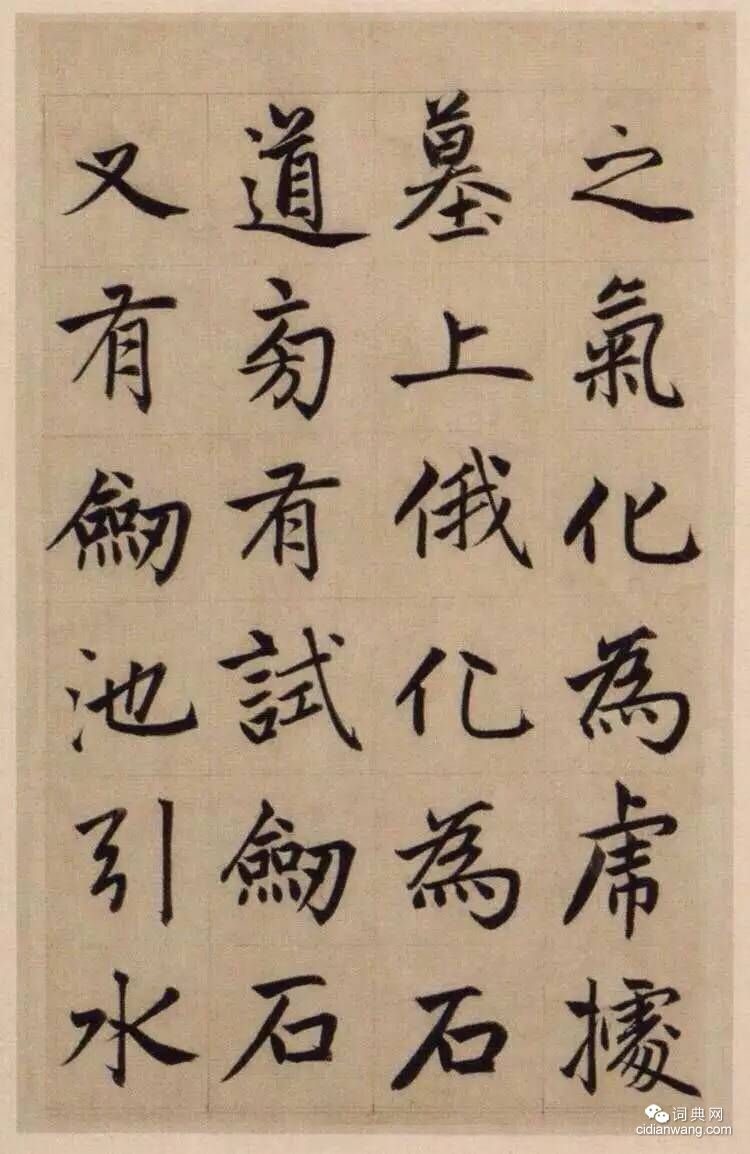 之氣化為虎據
墓上俄化為石
道旁有試劒石
又有劒池引水
词典网
cidianwang.com